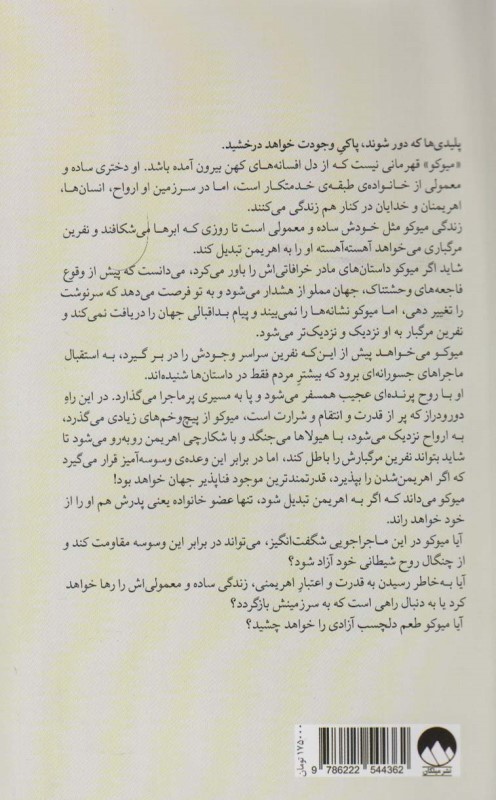 پلیدی‌ها که دور شوند، پاکیِ وجودت خواهد درخشید.
«میوکو» قهرمانی نیست که از دل افسانه‌های کهن بیرون آمده باشد. او دختری ساده و
معمولی از خانواده‌ی طبقه‌ی خدمتکار است، اما در سرزمین او ارواح، انسان‌ها،
اهریمنان و خدایان در کنار هم زندگی می‌کنند.
زندگی میوکو مثل خودش ساده و معمولی است تا روزی که ابرها می‌شکافند و نفرین
مرگباری می‌خواهد آهسته‌آهسته او را به اهریمن تبدیل کند.
شاید اگر میوکو داستان‌های مادر خرافاتی‌اش را باور می‌کرد، می‌دانست که پیش از وقوع
فاجعه‌های وحشتناک، جهان مملو از هشدار می‌شود و به تو فرصت می‌دهد که سرنوشت
را تغییر دهی، اما میوکو نشانه‌ها را نمی‌بیند و پیام بداقبالی جهان را دریافت نمی‌کند و
نفرین مرگبار به او نزدیک و نزدیک‌تر می‌شود.
میوکو می‌خواهد پیش از این‌که نفرین سراسر وجودش را در بر گیرد، به استقبال
ماجراهای جسورانه‌ای برود که بیشترِ مردم فقط در داستان‌ها شنیده‌اند.
او با روح پرنده‌ای عجیب همسفر می‌شود و پا به مسیری پرماجرا می‌گذارد. در این راهِ
دورودراز که پر از قدرت و انتقام و شرارت است، میوکو از پیچ‌وخم‌های زیادی می‌گذرد،
به ارواح نزدیک می‌شود، با هیولاها می‌جنگد و با شکارچی اهریمن روبه‌رو می‌شود تا
شاید بتواند نفرین مرگبارش را باطل کند، اما در برابر این وعده‌ی وسوسه‌آمیز قرار می‌گیرد
که اگر اهریمن‌شدن را بپذیرد، قدرتمندترین موجود فناپذیر جهان خواهد بود!
میوکو می‌داند که اگر به اهریمن تبدیل شود، تنها عضو خانواده یعنی پدرش هم او را از
خود خواهد راند.
آیا میوکو در این ماجراجویی شگفت‌انگیز، می‌تواند در برابر این وسوسه مقاومت کند و
از چنگال روح شیطانی خود آزاد شود؟
آیا به‌خاطر رسیدن به قدرت و اعتبارِ اهریمنی، زندگی ساده و معمولی‌اش را رها خواهد
کرد یا به دنبال راهی است که به سرزمینش بازگردد؟
آیا میوکو طعم دلچسب آزادی را خواهد چشید؟
۱۷۵۰۰۰ تومان
9 786222 544362
نشر میلکان